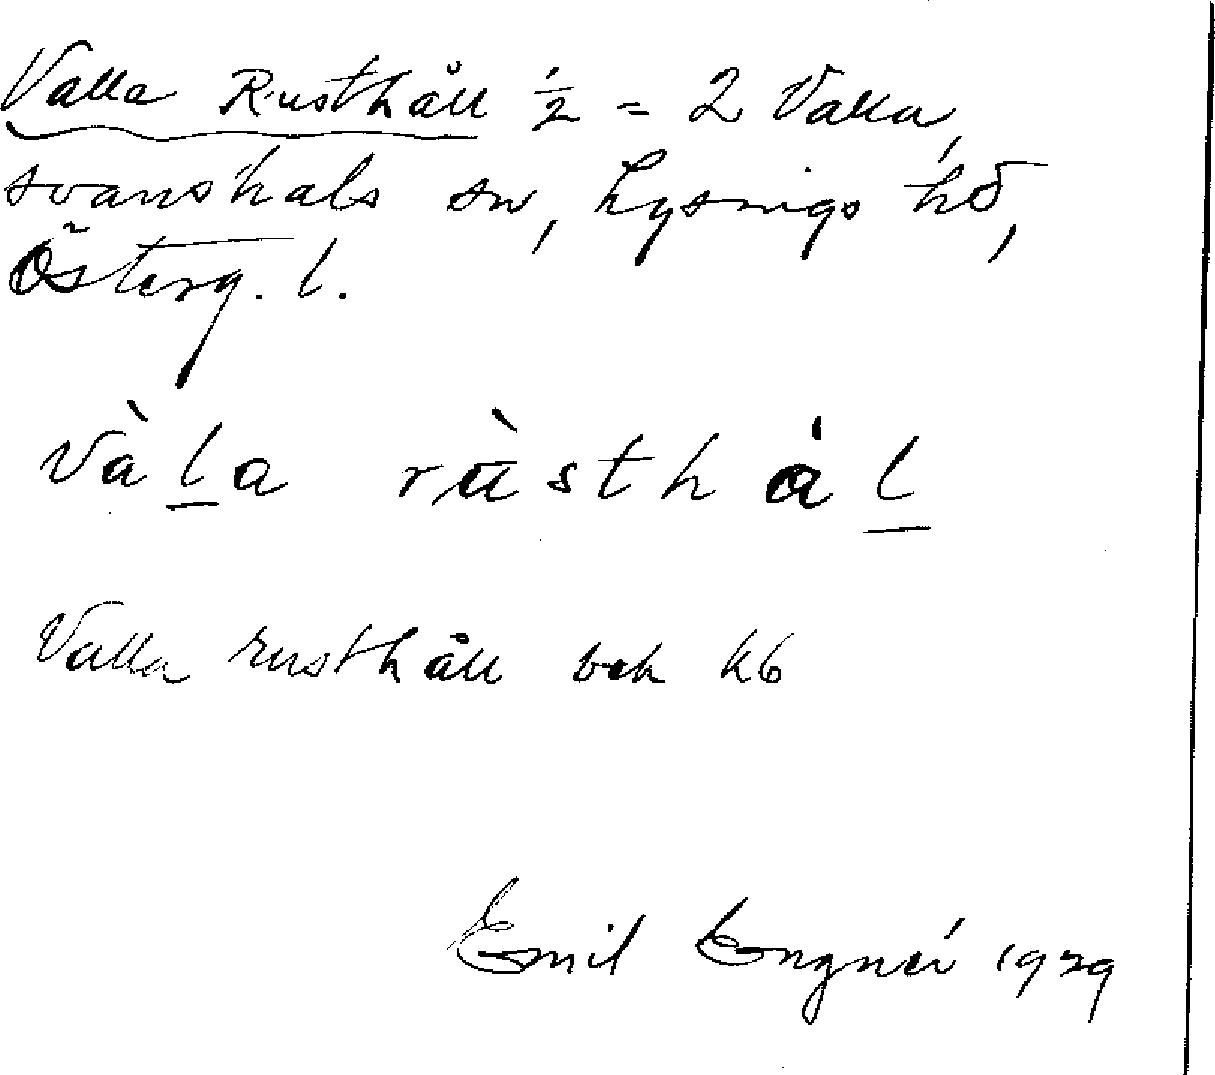 Valla Rusthåll ½ = 2 Valla,
Svanshals sn, Lysings hd,
Österg. l.
Vàla rùsthål
Valla rusthåll bok kb
Emil Engnér 1929